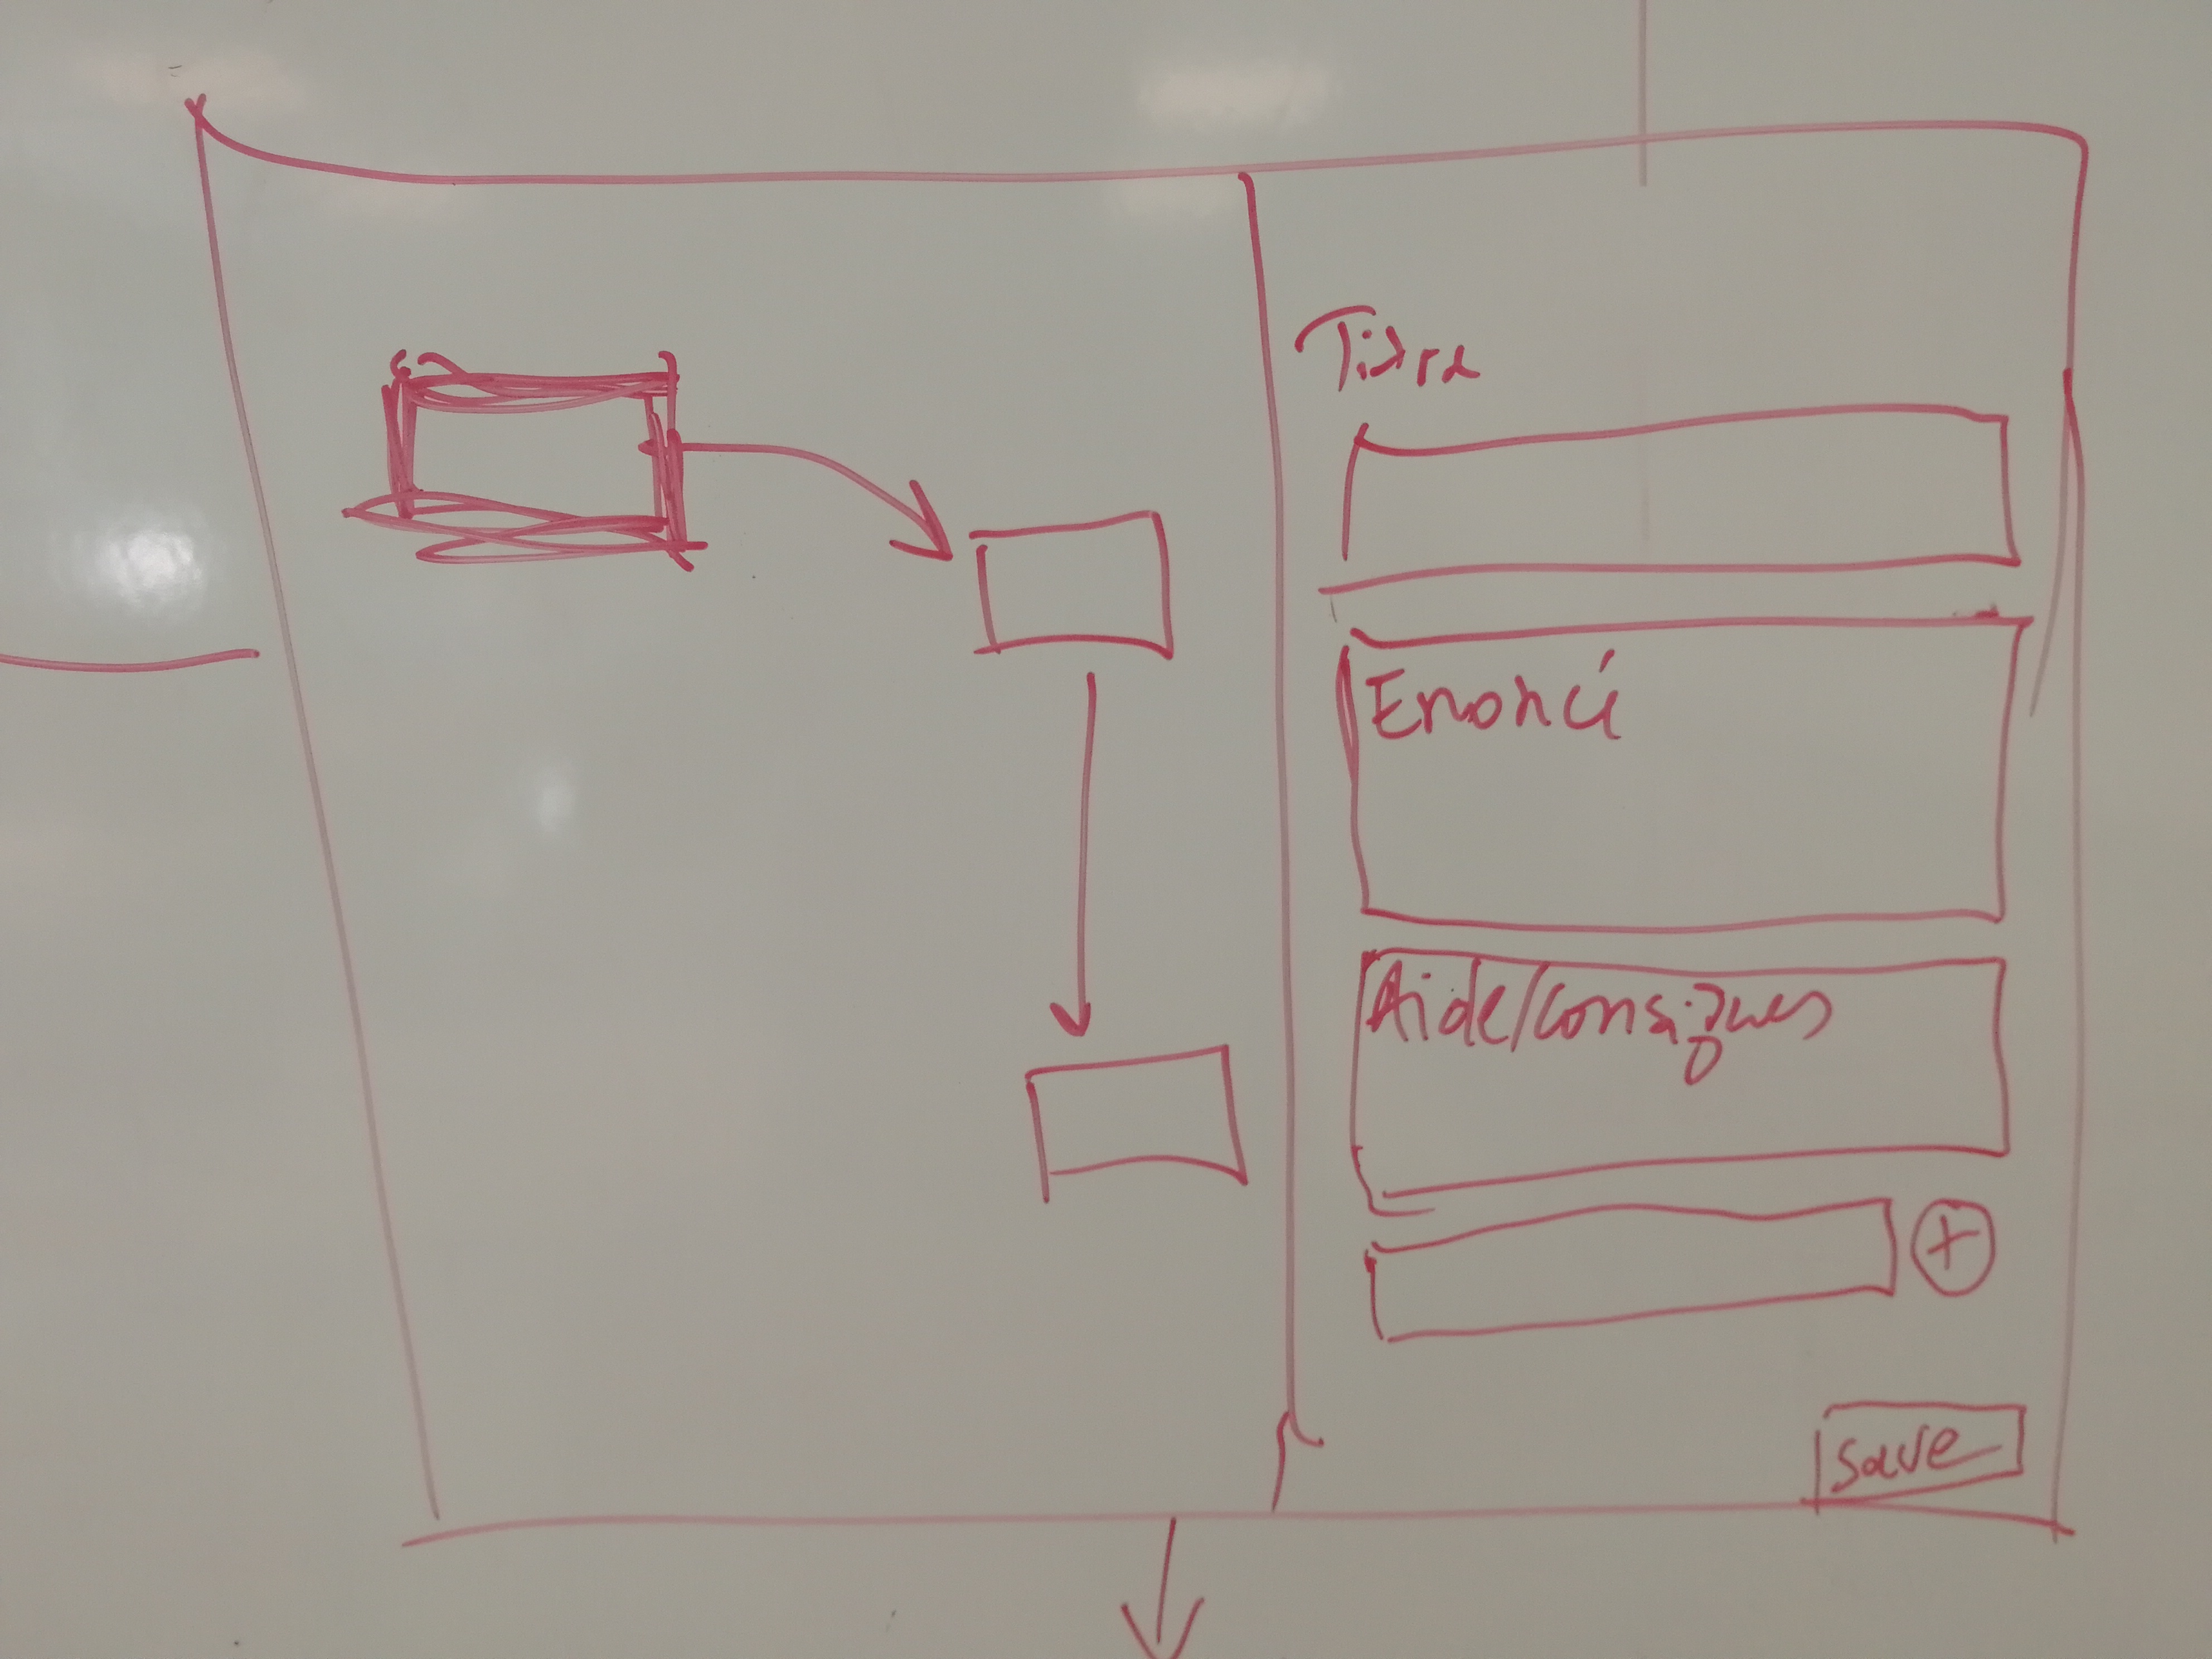 Titre
Enoncé
Aide/consignes
+
save